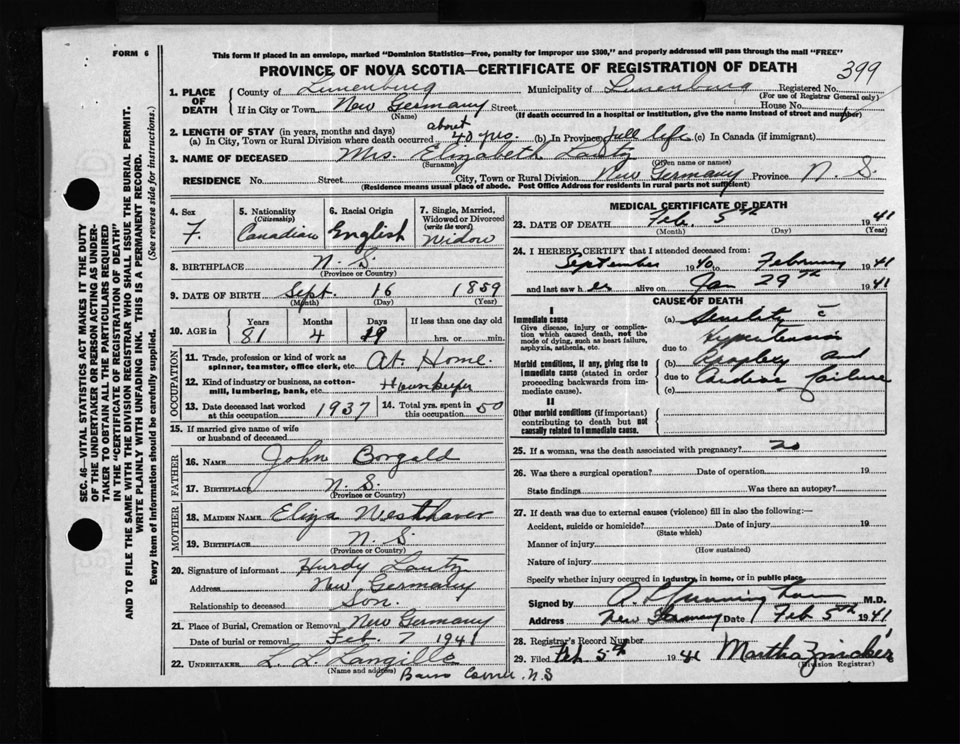 FORM 6
This form if placed in an envelope, marked "Dominion Statistics—Free, penalty for improper use $300," and properly addressed will pass through the mail "FREE"
PROVINCE OF NOVA SCOTIA—CERTIFICATE OF REGISTRATION OF DEATH
399
1. PLACE OF DEATH
County of Lunenburg Municipality of Lunenburg Registered No.
(For use of Registrar General only)
If in City or Town New Germany Street House No.
(Name) (If death occurred in a hospital or institution, give the name instead of street and number)
2. LENGTH OF STAY (in years, months and days)
(a) In City, Town or Rural Division where death occurred about 40 yrs. (b) In Province full life (c) In Canada (if immigrant)
3. NAME OF DECEASED Mrs. Elizabeth Lantz
(Surname) (Given name or names)
RESIDENCE No. Street City, Town or Rural Division New Germany Province N. S.
(Residence means usual place of abode. Post Office Address for residents in rural parts not sufficient)
4. Sex F.
5. Nationality (Citizenship) Canadian
6. Racial Origin English
7. Single, Married, Widowed or Divorced (write the word) Widow
8. BIRTHPLACE N. S.
(Province or Country)
9. DATE OF BIRTH Sept. 16 1859
(Month) (Day) (Year)
10. AGE in Years Months Days If less than one day old
81 4 19 hrs. or min.
OCCUPATION
11. Trade, profession or kind of work as spinner, teamster, office clerk, etc. At Home.
12. Kind of industry or business, as cotton-mill, lumbering, bank, etc. Housekeeper
13. Date deceased last worked at this occupation 1937
14. Total yrs. spent in this occupation 50
15. If married give name of wife or husband of deceased
FATHER
16. NAME John Borgald
17. BIRTHPLACE N. S.
(Province or Country)
MOTHER
18. MAIDEN NAME Eliza Westhaver
19. BIRTHPLACE N. S.
(Province or Country)
20. Signature of informant Hurdy Lantz
Address New Germany
Relationship to deceased Son.
21. Place of Burial, Cremation or Removal New Germany
Date of burial or removal Feb. 7 1941
22. UNDERTAKER L. L. Langille
(Name and address)
Barss Corner, N.S
MEDICAL CERTIFICATE OF DEATH
23. DATE OF DEATH Feb. 5th 1941
(Month) (Day) (Year)
24. I HEREBY CERTIFY that I attended deceased from:
September 1940 to February 1941
and last saw her alive on Jan 29th 1941
CAUSE OF DEATH
I
Immediate cause
Give disease, injury or complication which caused death, not the mode of dying, such as heart failure, asphyxia, asthenia, etc.
(a) Senility c
Hypertension
due to
Morbid conditions, if any, giving rise to immediate cause (stated in order proceeding backwards from immediate cause).
(b) Apoplexy and
due to Cardiac Failure
(c)
II
Other morbid conditions (if important) contributing to death but not causally related to immediate cause.
25. If a woman, was the death associated with pregnancy? no
26. Was there a surgical operation? Date of operation 19
State findings Was there an autopsy?
27. If death was due to external causes (violence) fill in also the following:—
Accident, suicide or homicide? Date of injury 19
(State which)
Manner of injury
(How sustained)
Nature of injury
Specify whether injury occurred in industry, in home, or in public place
Signed by M.D.
Address New Germany Date Feb 5th 1941
28. Registrar's Record Number
29. Filed Feb 5th 1941 Martha Zwicker
(Division Registrar)
SEC. 46—VITAL STATISTICS ACT MAKES IT THE DUTY
OF THE UNDERTAKER OR PERSON ACTING AS UNDER-
TAKER TO OBTAIN ALL THE PARTICULARS REQUIRED
IN THE "CERTIFICATE OF REGISTRATION OF DEATH"
AND TO FILE THE SAME WITH THE DIVISION REGISTRAR WHO SHALL ISSUE THE BURIAL PERMIT.
WRITE PLAINLY WITH UNFADING INK. THIS IS A PERMANENT RECORD.
Every item of information should be carefully supplied. (See reverse side for instructions.)